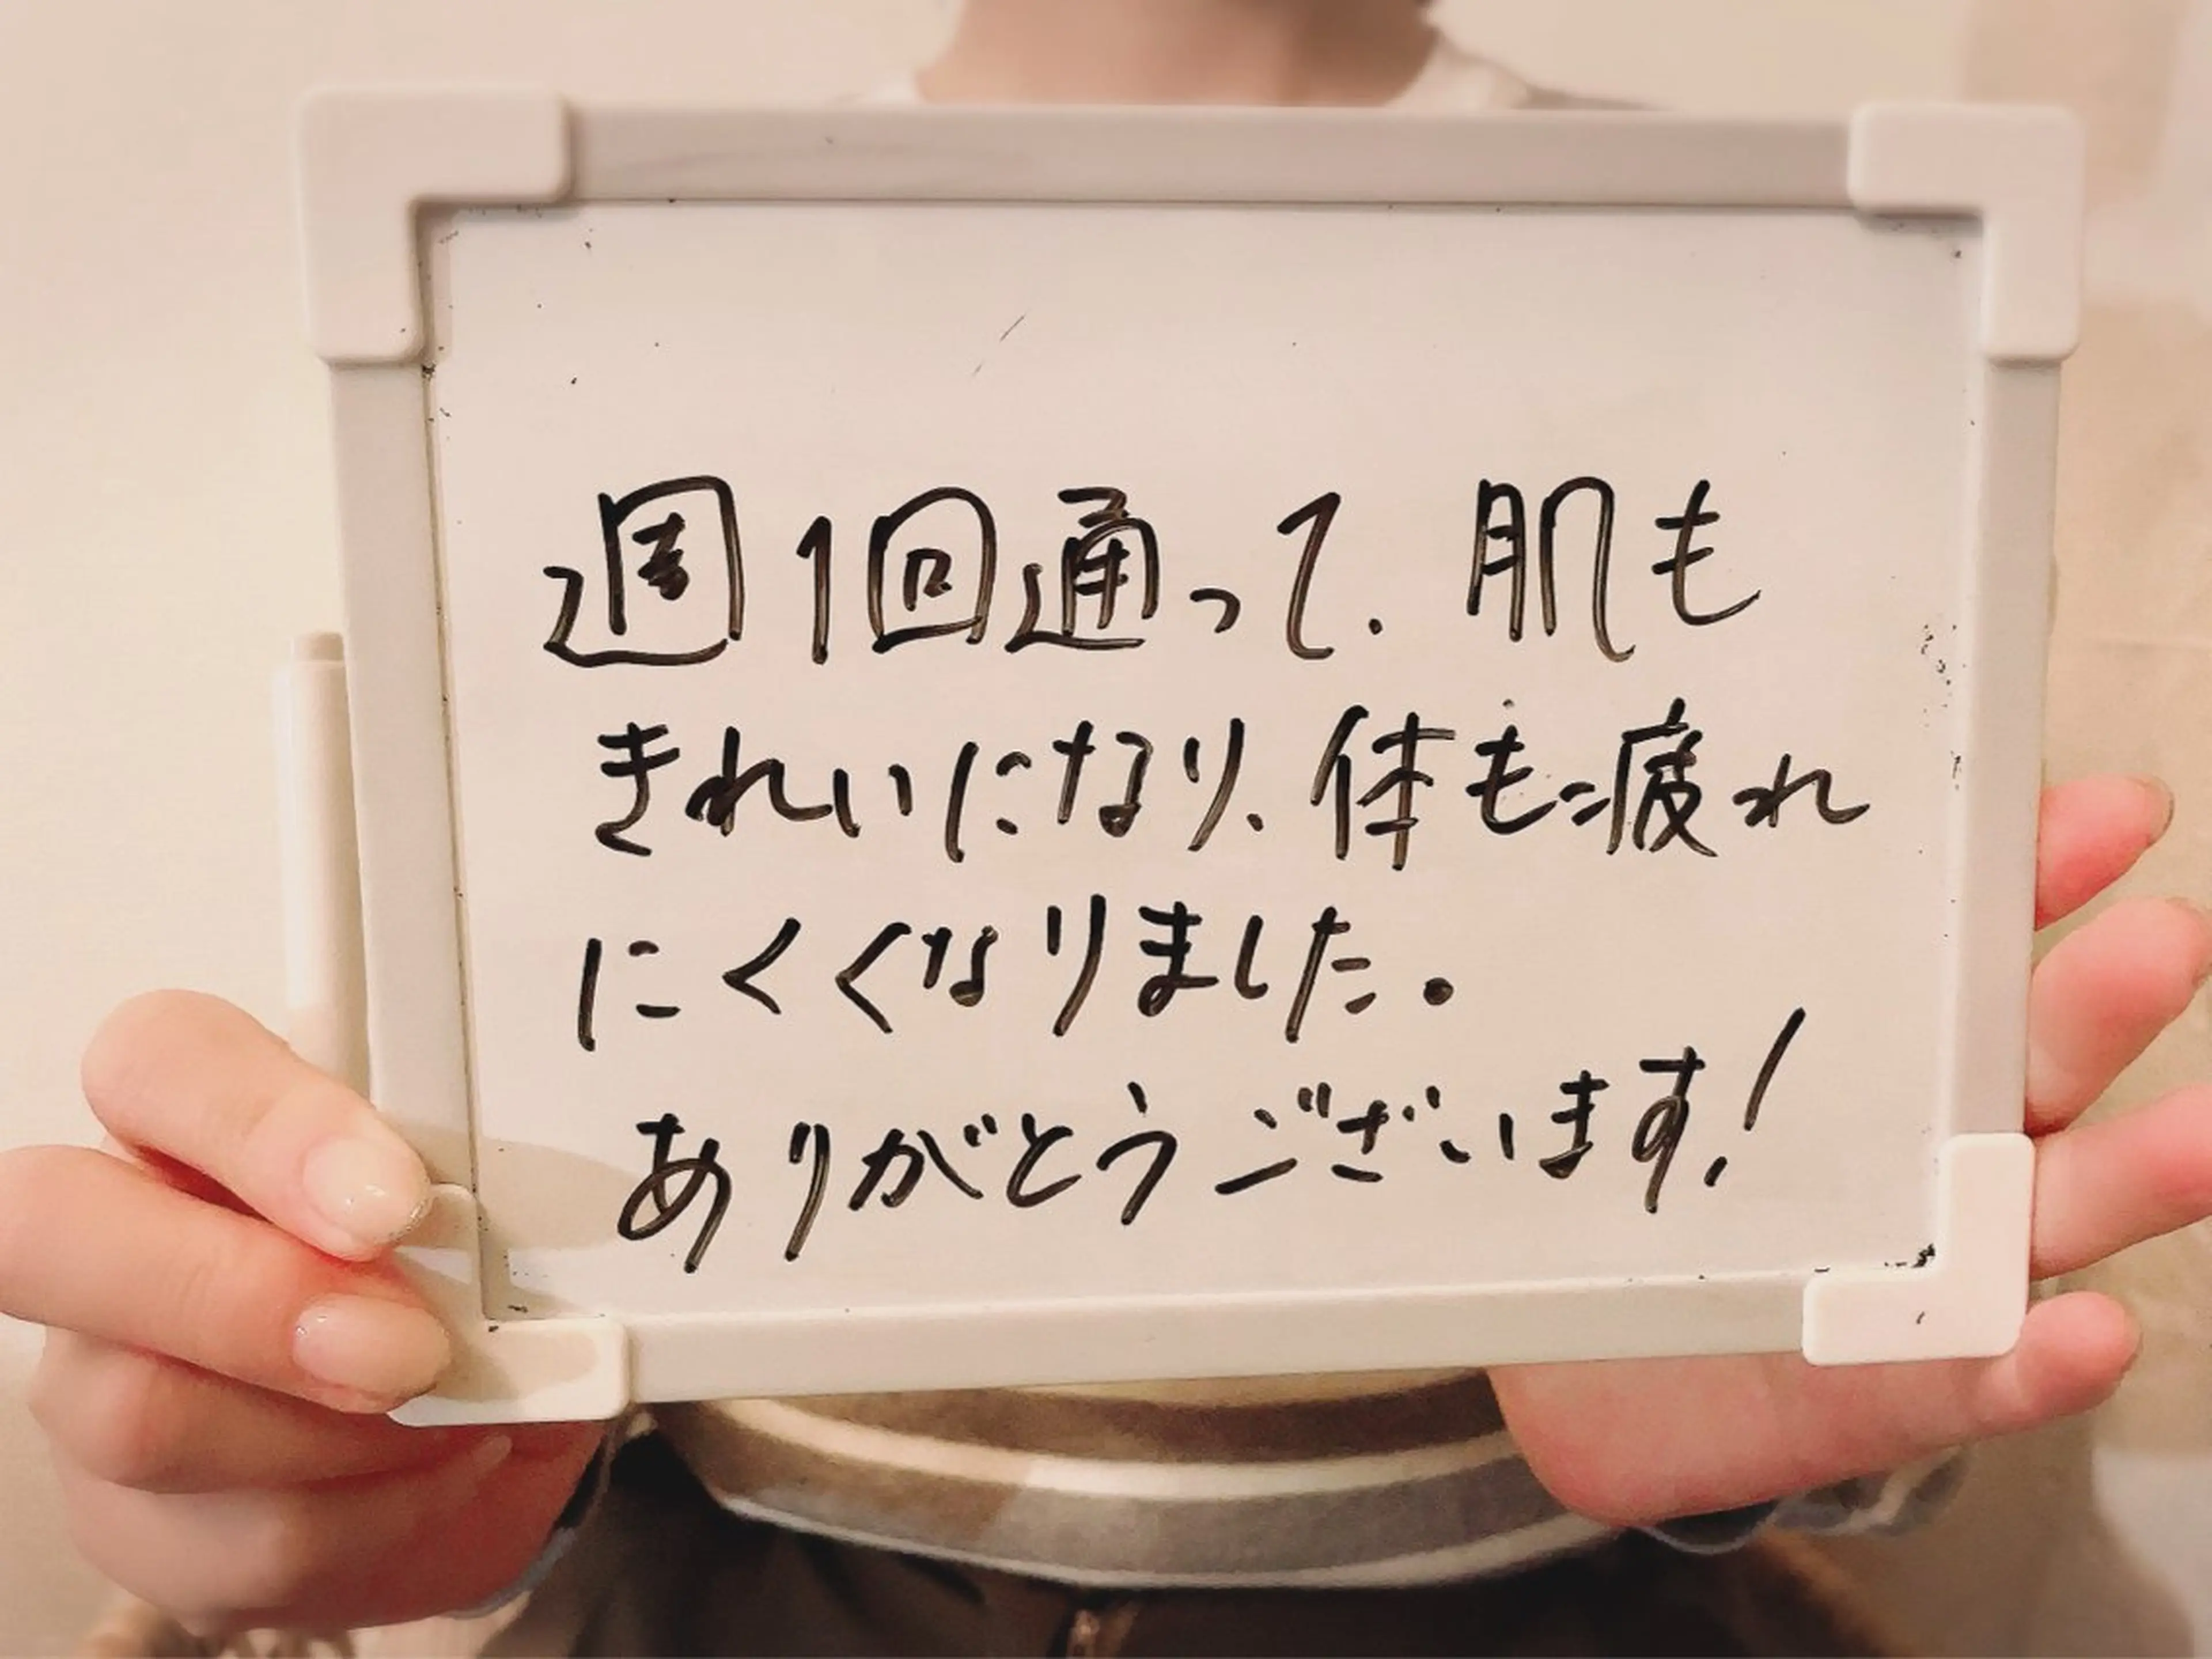 週1回通って、肌も
きれいになり、体も疲れ
にくくなりました。
ありがとうございます!